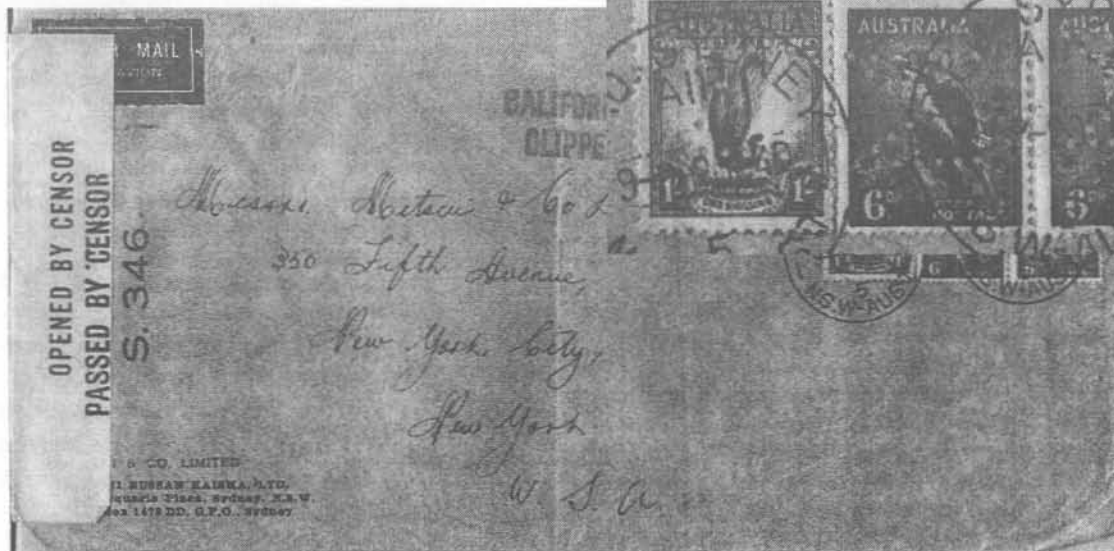 MAIL
AVION
OPENED BY CENSOR
PASSED BY CENSOR
S. 346.
CALIFOR
CLIPPE
AIR
1/-
1/-
AUSTRALIA
6D
5
N.S.W-AUST
Messrs. Mitsui & Co L
350 Fifth Avenue,
New York City,
New York
U. S. A.
& CO. LIMITED
BUSSAN KAISHA, LTD.
quarie Place, Sydney, N.S.W.
Box 1478 DD, G.P.O., Sydney